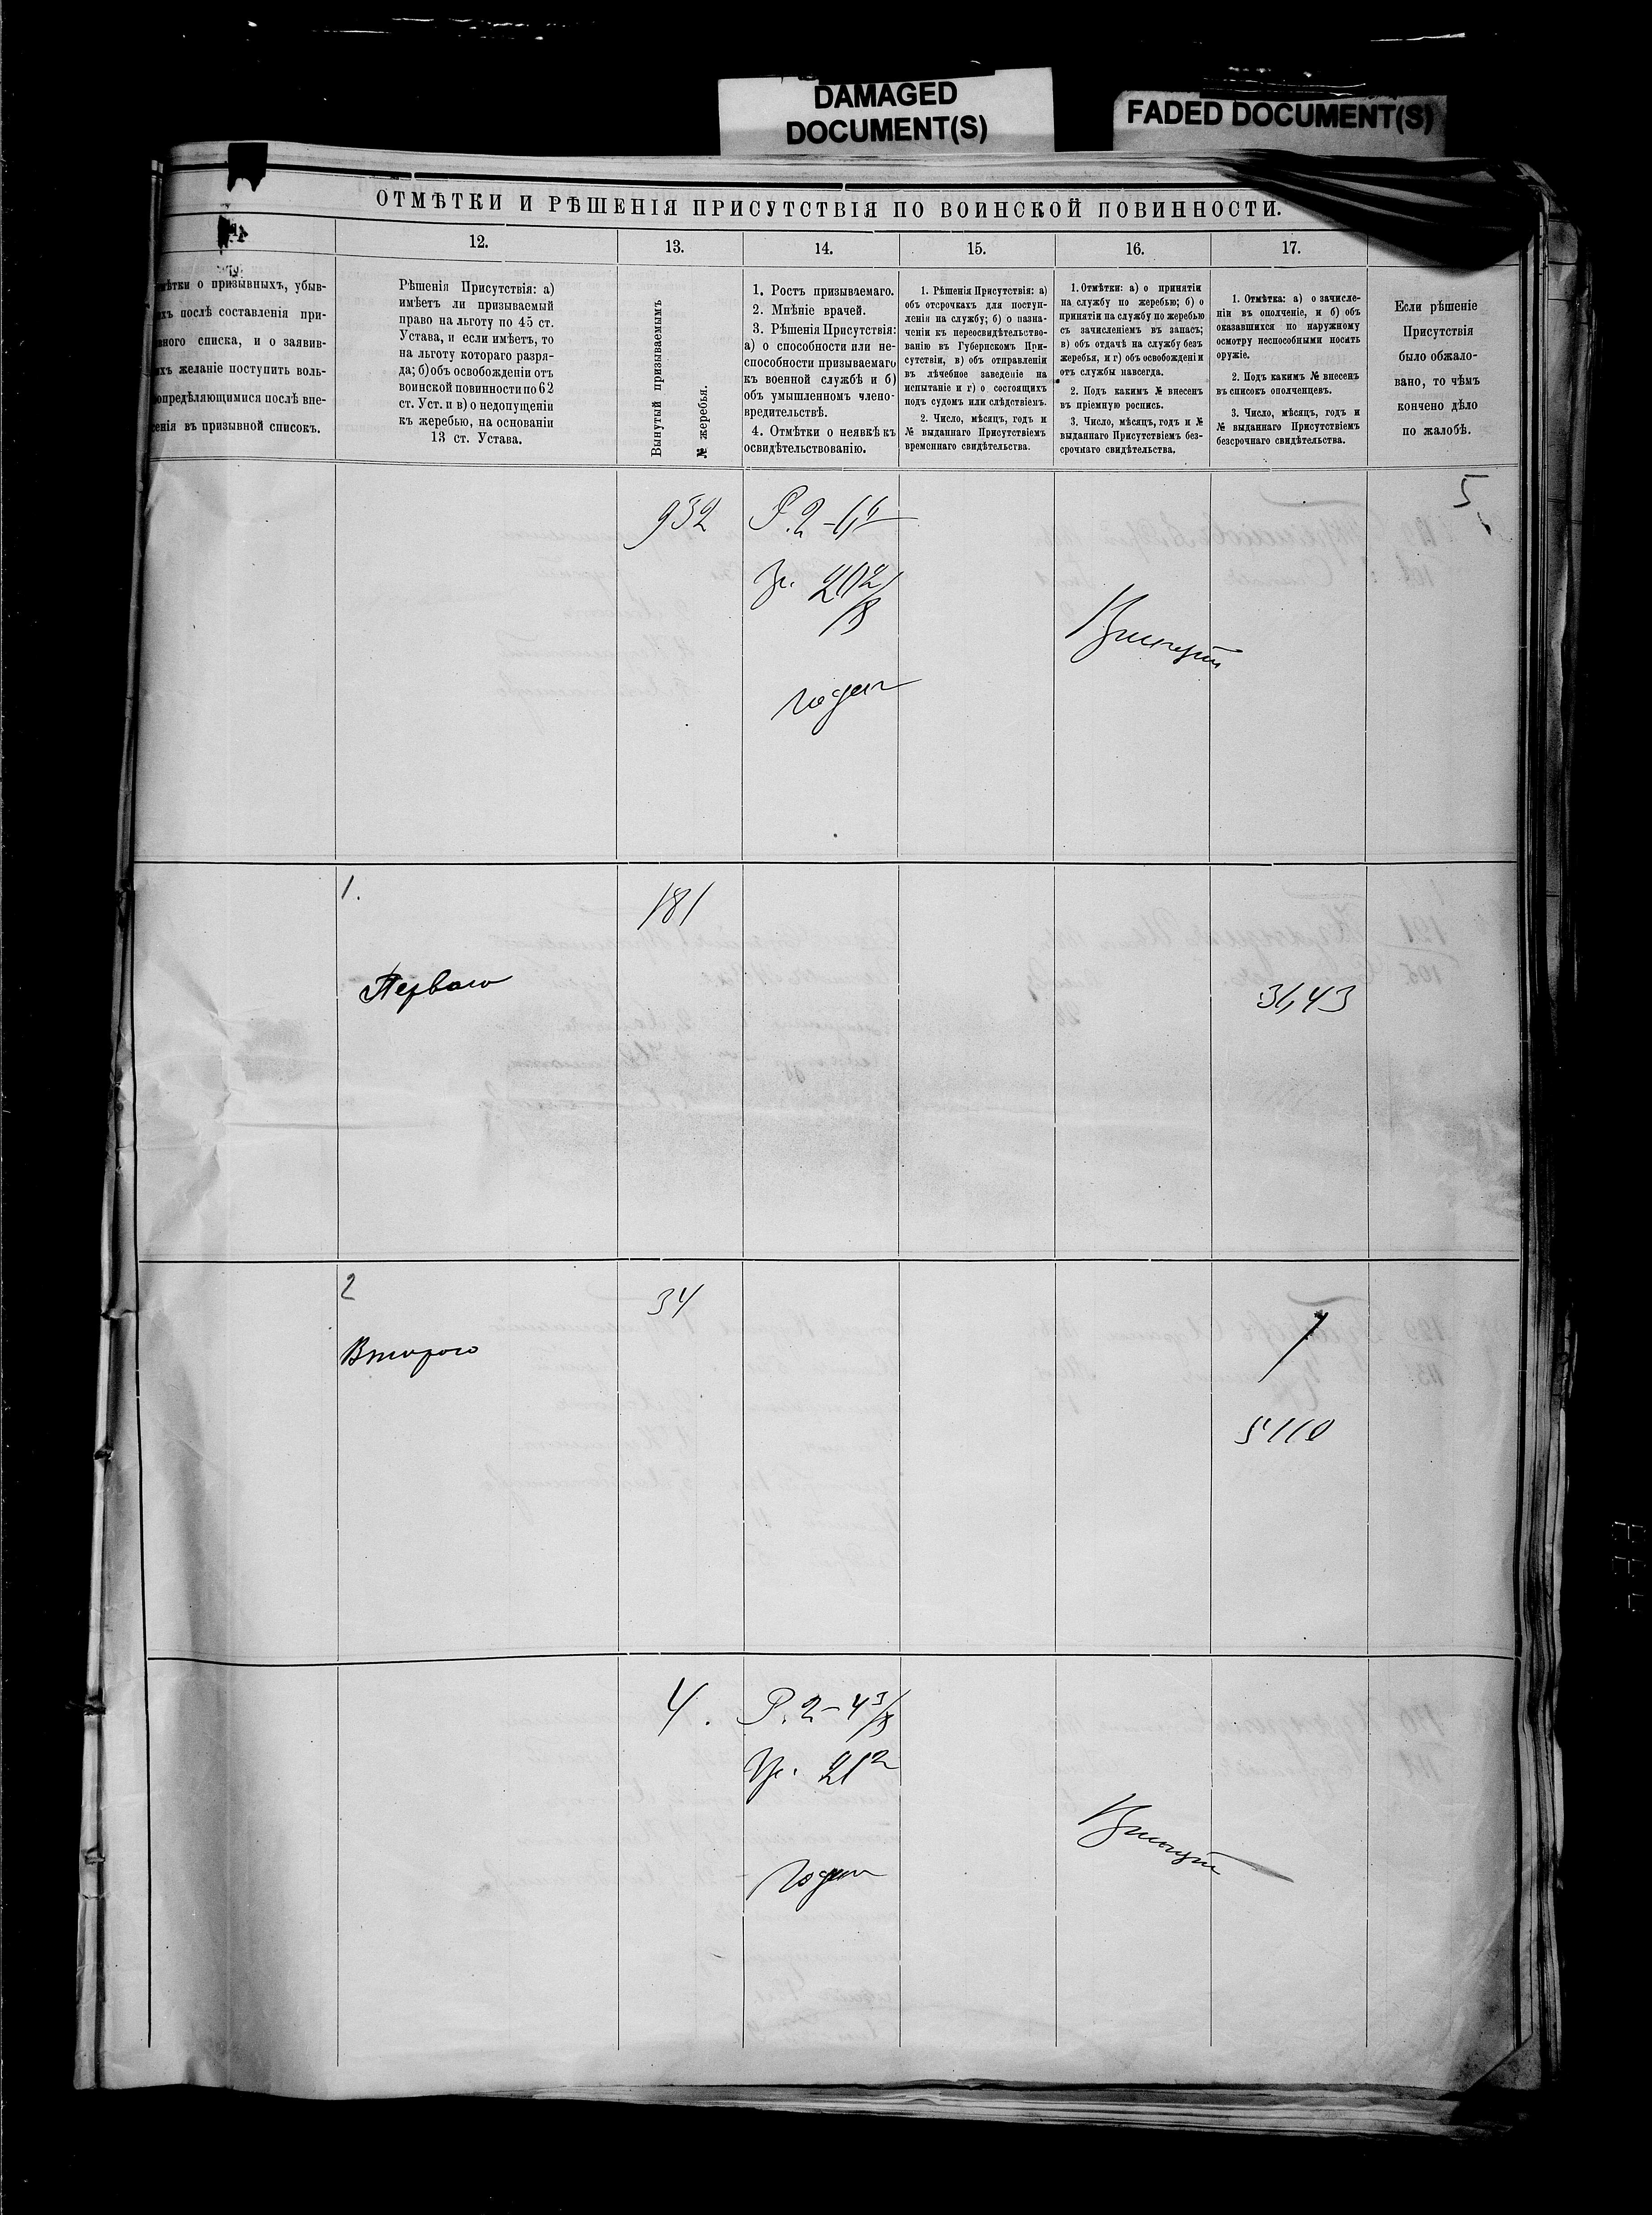 DAMAGED
DOCUMENT(S)
FADED DOCUMENT(S)
ОТМѢТКИ И РѢШЕНІЯ ПРИСУТСТВІЯ ПО ВОИНСКОЙ ПОВИННОСТИ.
12.
13.
14.
15.
16.
17.
о призывныхъ, убыв-
послѣ составленія при-
списка, и о заявив-
желаніе поступить воль-
опредѣляющимися послѣ вне-
сенія въ призывной списокъ.
Рѣшенія Присутствія: а)
имѣетъ ли призываемый
право на льготу по 45 ст.
Устава, и если имѣетъ, то
на льготу котораго разря-
да; б) объ освобожденіи отъ
воинской повинности по 62
ст. Уст. и в) о недопущеніи
къ жеребью, на основаніи
13 ст. Устава.
Вынутый призываемымъ
№ жеребья.
1. Ростъ призываемаго.
2. Мнѣніе врачей.
3. Рѣшенія Присутствія:
а) о способности или не-
способности призываемаго
къ военной службѣ и б)
объ умышленномъ члено-
вредительствѣ.
4. Отмѣтки о неявкѣ къ
освидѣтельствованію.
1. Рѣшенія Присутствія: а)
объ отсрочкахъ для поступ-
ленія на службу; б) о назна-
ченіи къ переосвидѣтельство-
ванію въ Губернскомъ При-
сутствіи, в) объ отправленіи
въ лѣчебное заведеніе на
испытаніе и г) о состоящихъ
подъ судомъ или слѣдствіемъ.
2. Число, мѣсяцъ, годъ и
№ выданнаго Присутствіемъ
временнаго свидѣтельства.
1. Отмѣтки: а) о принятіи
на службу по жеребью; б) о
принятіи на службу по жеребью
съ зачисленіемъ въ запасъ;
в) объ отдачѣ на службу безъ
жеребья, и г) объ освобожденіи
отъ службы навсегда.
2. Подъ какимъ № внесенъ
въ пріемную роспись.
3. Число, мѣсяцъ, годъ и №
выданнаго Присутствіемъ без-
срочнаго свидѣтельства.
1. Отмѣтка: а) о зачисле-
ніи въ ополченіе, и б) объ
оказавшихся по наружному
осмотру неспособными носить
оружіе.
2. Подъ какимъ № внесенъ
въ списокъ ополченцевъ.
3. Число, мѣсяцъ, годъ и
№ выданнаго Присутствіемъ
безсрочнаго свидѣтельства.
Если рѣшеніе
Присутствія
было обжало-
вано, то чѣмъ
кончено дѣло
по жалобѣ.
5
932
Р. 2 -
годен
1.
181
Перваго
2
34
Втораго
5110
4.
Р. 2 - 4 3/8
годен